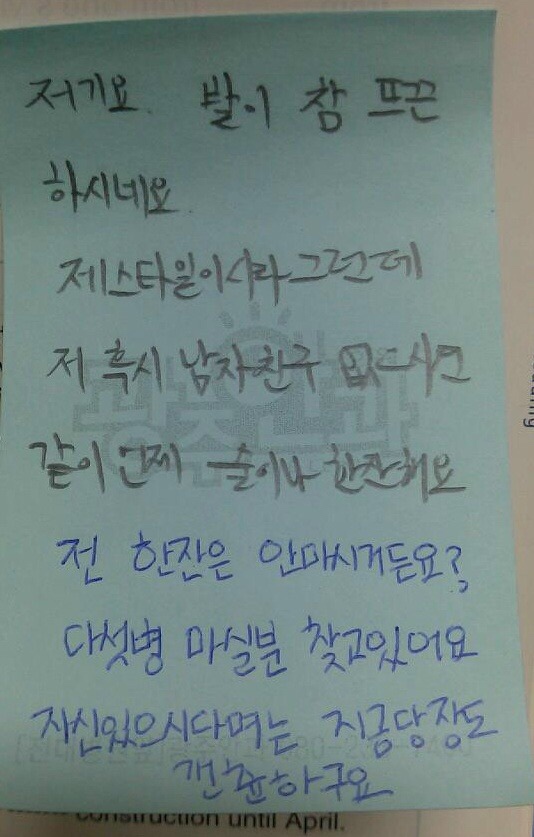 저기요. 발이 참 뜨끈
하시네요.
제스타일이시라그런데
저 혹시 남자친구 없으시면
같이 언제 술이나 한잔해요
전 한잔은 안마시거든요?
다섯병 마실분 찾고있어요
자신있으시다며는 지금당장도
갠춘하구요
광주안과
construction until April.